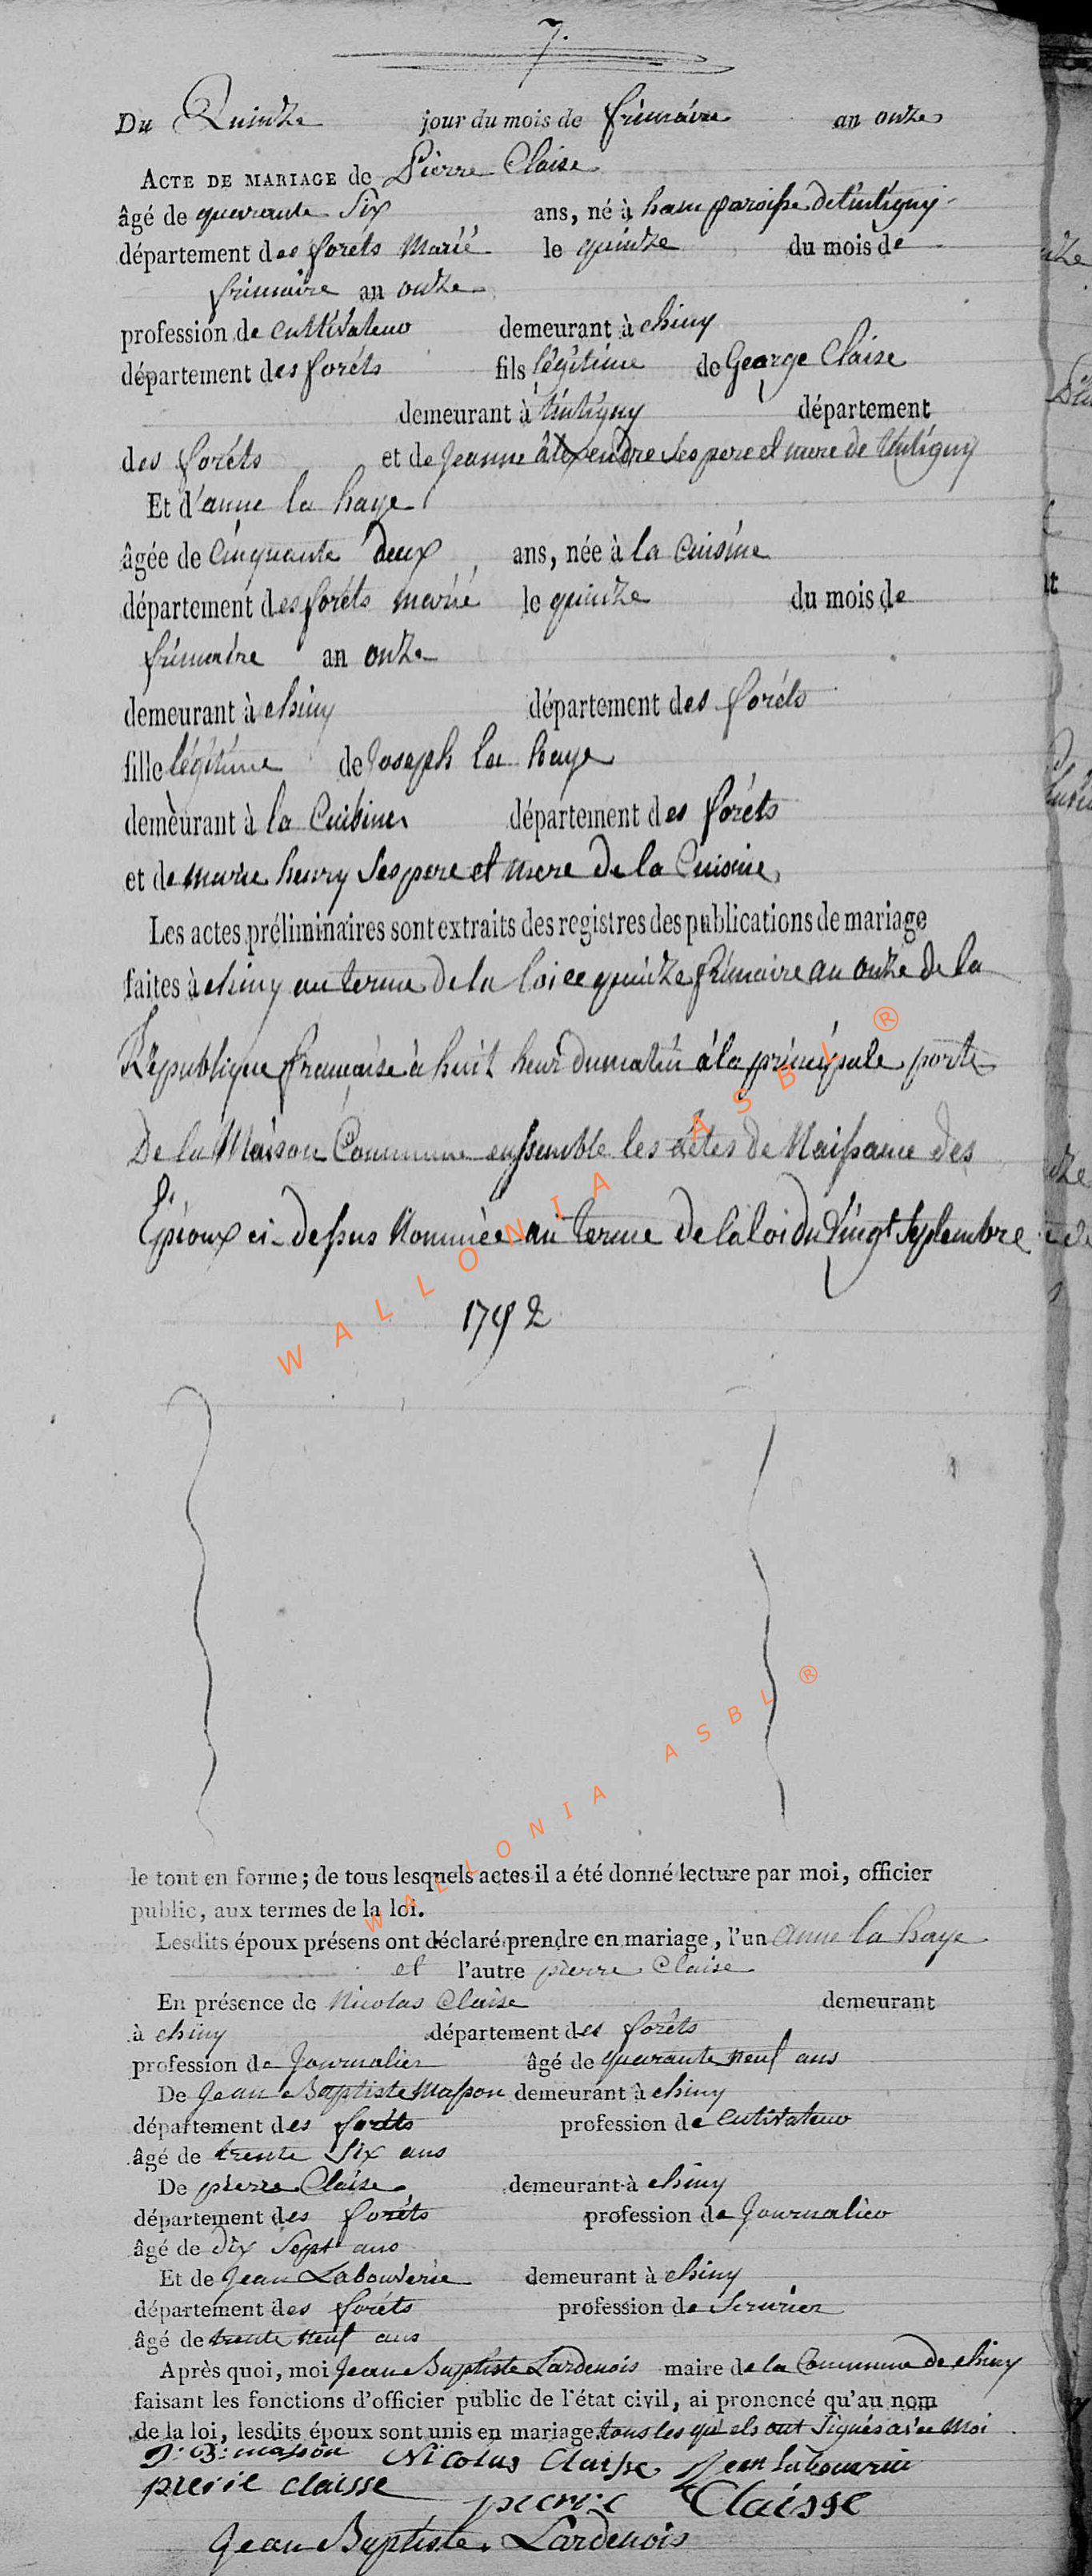 7.
Du Quinze jour du mois de frimaire an onze
ACTE DE MARIAGE de Pierre Claise
âgé de quarante Six ans, né à ham paroisse de tintigny
département des forêts Marié le quinze du mois de
frimaire an onze
profession de cultivateur demeurant à chiny
département des forêts fils légitime de George Claise
demeurant à tintigny département
des forêts et de Jeanne alexendre Ses pere et mere de tintigny
Et d'anne la haye
âgée de Cinquante deux ans, née à la Cuisine
département des forêts marié le quinze du mois de
frimaire an onze
demeurant à chiny département des forêts
fille légitime de Joseph la haye
demeurant à la Cuisine département des forêts
et de marie henry Ses pere et mere de la Cuisine
Les actes préliminaires sont extraits des registres des publications de mariage
faites à chiny au terme de la loi ce quinze frimaire an onze de la
République française à huit heur du matin à la principale porte
De la Maison Commune enssemble les actes de Naissance des
Epoux ci-dessus Nommée au terme de la loi du Vingt Septembre
1792
le tout en forme ; de tous lesquels actes il a été donné lecture par moi, officier
public, aux termes de la loi.
Lesdits époux présens ont déclaré prendre en mariage, l'un anne la haye
et l'autre pierre Claise
En présence de Nicolas Claise demeurant
à chiny département des forêts
profession de Journalier âgé de quarante neuf ans
De Jean Baptiste Masson demeurant à chiny
département des forêts profession de cultivateur
âgé de trente Six ans
De pierre Claise demeurant à chiny
département des forêts profession de Journalier
âgé de dix Sept ans
Et de Jean Labouverie demeurant à chiny
département des forêts profession de Serurier
âgé de trente neuf ans
Après quoi, moi Jean Baptiste Lardenois maire de la Commune de chiny
faisant les fonctions d'officier public de l'état civil, ai prononcé qu'au nom
de la loi, lesdits époux sont unis en mariage tous lesquels ont Signés avec Moi
J: B: masson Nicolas Claisse Jean labouverie
pierre claisse pierre Claisse
Jean Baptiste Lardenois
WALLONIA ASBL ®
WALLONIA ASBL ®